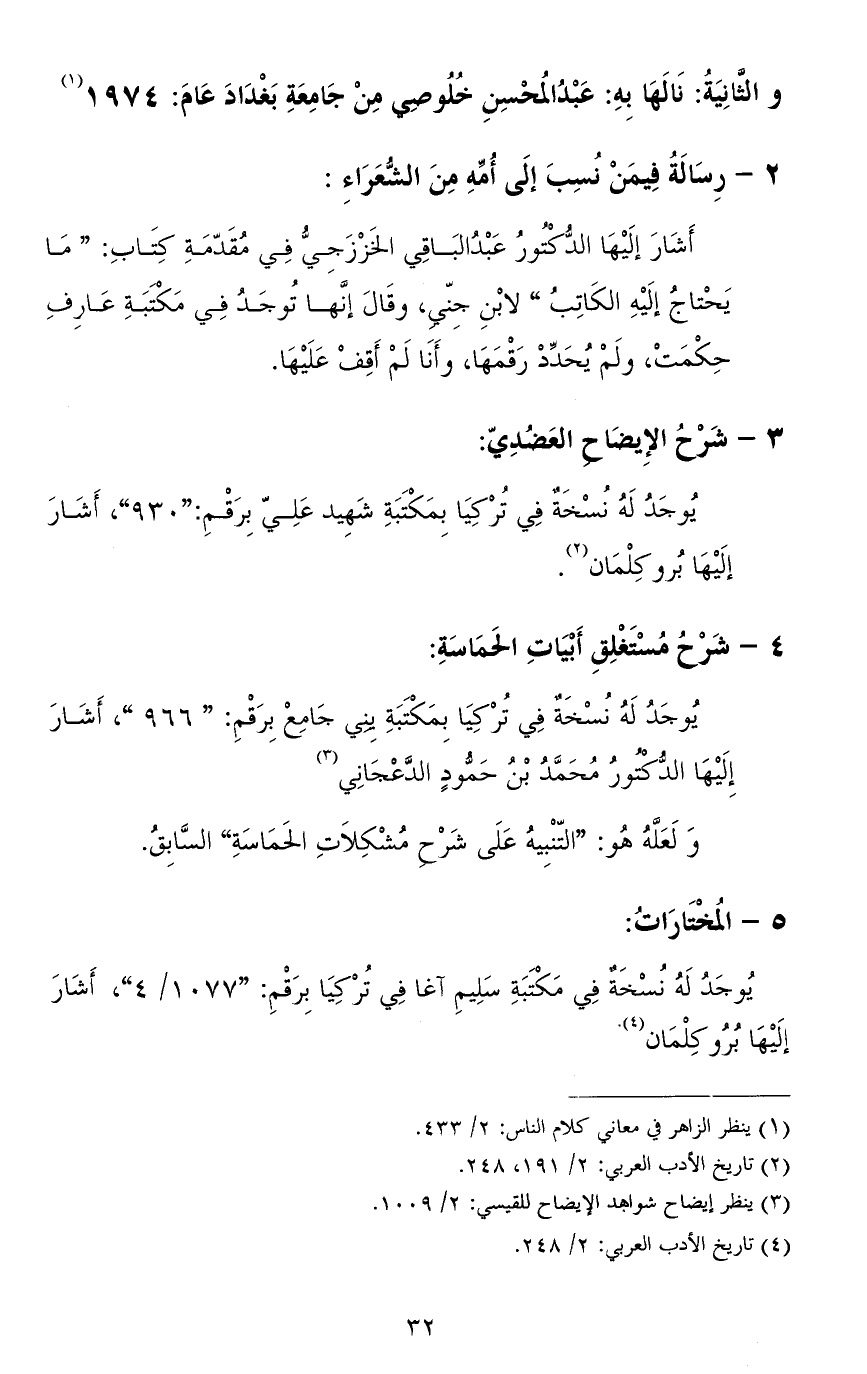 و الثَّانِيَةُ: نَالَهَا بِهِ: عَبْدُالمُحْسِنِ خُلُوصِي مِنْ جَامِعَةِ بَغْدَادَ عَامَ: ١٩٧٤ (١)
٢ – رِسَالَةُ فِيمَنْ نُسِبَ إلَى أُمِّهِ مِنَ الشُّعَرَاءِ :
أَشَارَ إلَيْهَا الدُّكْتُورُ عَبْدُالبَـاقِي الخَزْرَجِيُّ فِـي مُقَدّمَـةِ كِتَـابِ: ” مَـا
يَحْتاجُ إلَيْهِ الكَاتِبُ “ لابْنِ جِنّي، وقَالَ إنَّهـا تُوجَـدُ فِـي مَكْتَبَـةِ عَـارِفِ
حِكْمَتْ، ولَمْ يُحَدِّدْ رَقْمَهَا، وأَنَا لَمْ أَقِفْ عَلَيْهَا.
٣ – شَرْحُ الإِيضَاحِ العَضُدِيّ:
يُوجَدُ لَهُ نُسْخَةٌ فِي تُرْكِيَا بِمَكْتَبَةِ شَهِيد عَلِـيّ بِرَقْـمِ:”٩٣٠“، أَشَـارَ
إلَيْهَا بُروكِلْمَان(٢).
٤ – شَرْحُ مُسْتَغْلِقِ أَبْيَاتِ الحَمَاسَةِ:
يُوجَدُ لَهُ نُسْخَةٌ فِي تُرْكِيَا بِمَكْتَبَةِ يِنِي جَامِعْ بِرَقْمِ: ” ٩٦٦ “، أَشَـارَ
إلَيْهَا الدُّكْتُورُ مُحَمَّدُ بْنُ حَمُّودٍ الدَّعْجَانِي(٣)
وَ لَعَلَّهُ هُو: ”التّنْبِيهُ عَلَى شَرْحِ مُشْكِلاَتِ الحَمَاسَةِ“ السَّابِقُ.
٥ – المُخْتَارَاتُ:
يُوجَدُ لَهُ نُسْخَةٌ فِي مَكْتَبَةِ سَلِيمِ آغا فِي تُرْكِيَا بِرَقْمِ: ”١٠٧٧/ ٤“، أَشَارَ
إلَيْهَا بُرُوكِلْمَان(٤).
(١) ينظر الزاهر في معاني كلام الناس: ٢/ ٤٣٣.
(٢) تاريخ الأدب العربي: ٢/ ١٩١، ٢٤٨.
(٣) ينظر إيضاح شواهد الإيضاح للقيسي: ٢/ ١٠٠٩.
(٤) تاريخ الأدب العربي: ٢/ ٢٤٨.
٣٢